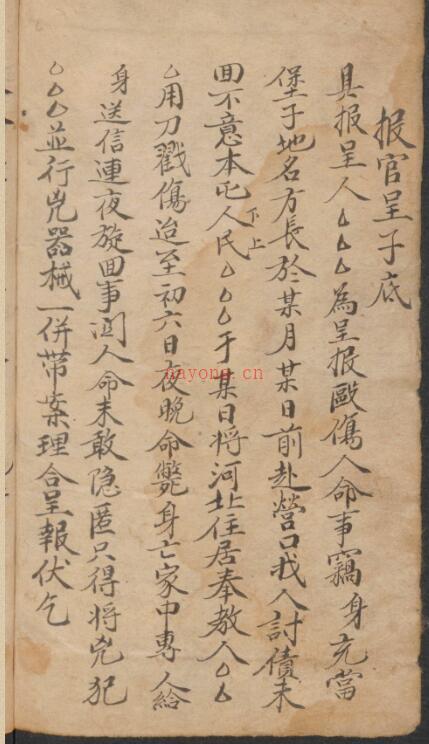 报官呈子底
具报呈人厶厶厶為呈报毆傷人命事竊身充當
堡子地名方長於某月某日前赴營口我人討債未
回不意本屯人民厶厶厶于某日將河北住居奉教人厶厶
下上
厶用刀戳傷迨至初六日夜晚命斃身亡家中專人給
身送信連夜旋回事関人命未敢隐匿只得將兇犯
厶厶厶並行兇器械一併带案理合呈報伏乞
nayong.cn